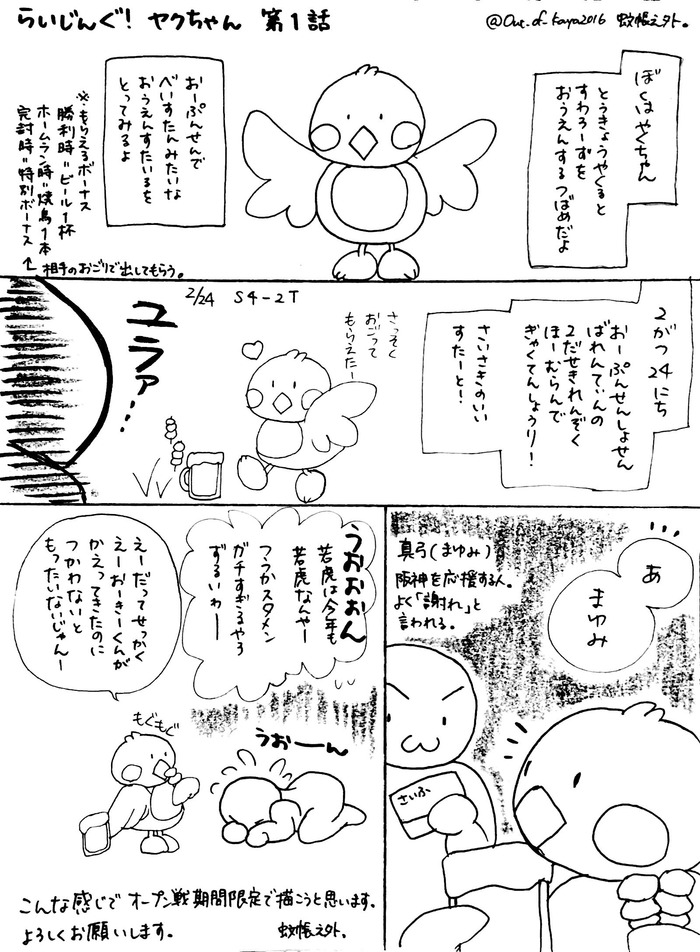 らいじんぐ! ヤクちゃん 第1話
@Out_of_kaya2016 蚊帳之外。
ぼくはやくちゃん
とうきょうやくると
すわろーずを
おうえんするつばめだよ
おーぷんせんで
べーすたんみたいな
おうえんすたいるを
とってみるよ
※もらえるボーナス
勝利時=ビール1杯
ホームラン時=焼鳥1本
完封時=特別ボーナス
↑相手のおごりで出してもらう。
2がつ24にち
おーぷんせんしょせん
ばれんてぃんの
2だせきれんぞく
ほーむらんで
ぎゃくてんしょうり!
さいさきのいい
すたーと!
さっそく
おごって
もらえたー
2/24 S4-2T
ユラァ…
あ
まゆみ
真弓(まゆみ)
阪神を応援する人。
よく「謝れ」と
言われる。
さいふ
うおぉおん
若虎は今年も
若虎なんやー
つうかスタメン
ガチすぎるやろ
ずるいわー
えーだってせっかく
えーおーきーくんが
かえってきたのに
つかわないと
もったいないじゃんー
もぐもぐ
うおーん
こんな感じでオープン戦期間限定で描こうと思います。
よろしくお願いします。 蚊帳之外。